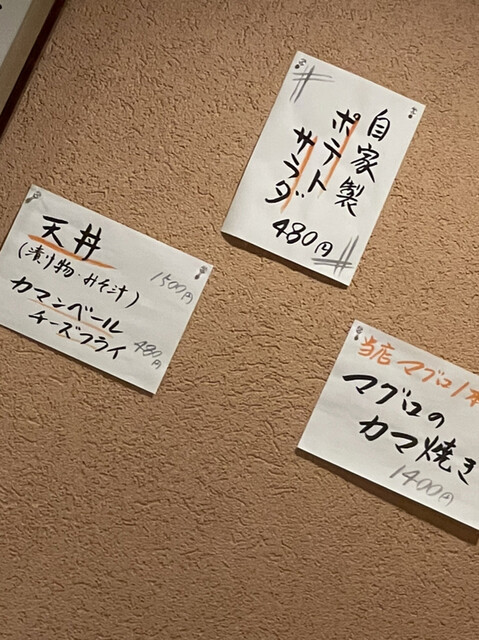 自家製
ポテト
サラダ
480円
天丼
(漬け物・みそ汁)
1500円
カマンベール
チーズフライ
480円
当店マグロ1本
マグロの
カマ焼き
1400円